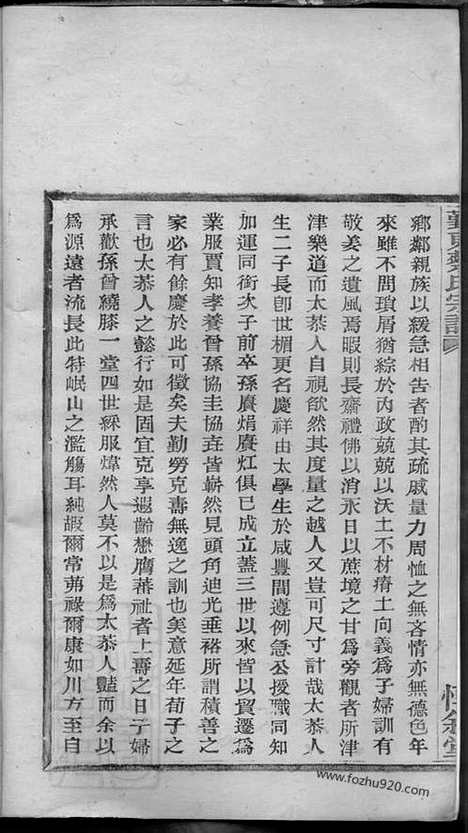 鄉鄰親族以緩急相告者酌其疏戚量力周恤之無吝情亦無德色年
來雖不問瑣屑猶綜於內政兢兢以沃土不材瘠土向義爲子婦訓有
敬姜之遺風焉暇則長齋禮佛以消永日以蔗境之甘爲旁觀者所津
津樂道而太恭人自視欿然其度量之越人又豈可尺寸計哉太恭人
生二子長卽世楣更名慶祥由太學生於咸豐間遵例急公援職同知
加運同銜次子前卒孫賡焆賡灴俱已成立蓋三世以來皆以貿遷爲
業服賈知孝養曾孫協圭協垚皆嶄然見頭角迪光垂裕所謂積善之
家必有餘慶於此可徵矣夫勤勞克壽無逸之訓也美意延年荀子之
言也太恭人之懿行如是固宜克享遐齡懋膺蕃祉者上壽之日子婦
承歡孫曾繞膝一堂四世綵服煒然人莫不以是爲太恭人豔而余以
爲源遠者流長此特岷山之濫觴耳純嘏爾常茀祿爾康如川方至自
氏宗譜
www.fozhu920.com